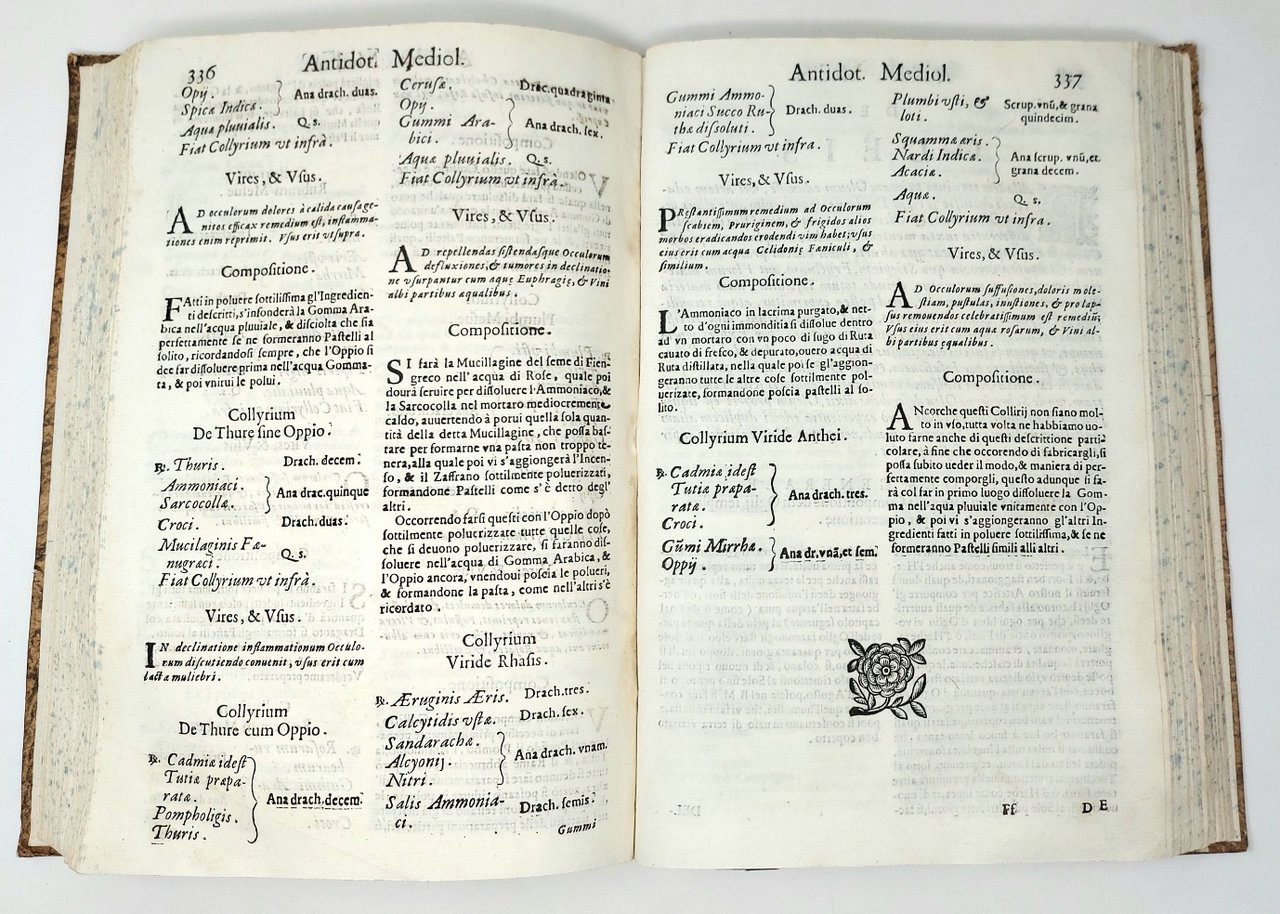 336
Antidot. Mediol.
Opij.
Spicæ Indicæ.
Ana drach. duas.
Aquæ pluuialis. Q. s.
Fiat Collyrium vt infrà.
Vires, & Vsus.
AD occulorum dolores à calida causa ge-
nitos efficax remedium est, inflamma-
tiones enim reprimit. Vsus erit vt supra.
Compositione.
FAtti in poluere sottilissima gl'Ingredien-
ti descritti, s'infonderà la Gomma Ara-
bica nell'acqua pluuiale, & disciolta che sia
perfettamente se ne formeranno Pastelli al
solito, ricordandosi sempre, che l'Oppio si
dee far dissoluere prima nell'acqua Gomma-
ta, & poi vnirui le polui.
Collyrium
De Thure sine Oppio.
℞. Thuris. Drach. decem.
Ammoniaci.
Sarcocollæ.
Ana drac. quinque
Croci. Drach. duas.
Mucilaginis Fæ-
nugræci. Q. s.
Fiat Collyrium vt infrà.
Vires, & Vsus.
IN declinatione inflammationum Occulo-
rum discutiendo conuenit, vsus erit cum
lacte muliebri.
Collyrium
De Thure cum Oppio.
℞. Cadmiæ idest
Tutiæ præpa-
ratæ.
Pompholigis.
Thuris.
Ana drach. decem.
Cerusæ. Drac. quadraginta.
Opij.
Gummi Ara-
bici.
Ana drach. sex.
Aquæ pluuialis. Q. s.
Fiat Collyrium vt infrà.
Vires, & Vsus.
AD repellendas sistendasque Occulorum
defluxiones, & tumores in declinatio-
ne vsurpantur cum aquę Euphragię, & Vini
albi partibus aqualibus.
Compositione.
SI farà la Mucillagine del seme di Fien-
greco nell'acqua di Rose, quale poi
dourà seruire per dissoluere l'Ammoniaco, &
la Sarcocolla nel mortaro mediocremente
caldo, auuertendo à porui quella sola quan-
tità della detta Mucillagine, che possa bas-
tare per formarne vna pasta non troppo te-
nera, alla quale poi vi s'aggiongerà l'Incen-
so, & il Zaffrano sottilmente poluerizati,
formandone Pastelli come s'è detto degl'
altri.
Occorrendo farsi questi con l'Oppio dopò
sottilmente poluerizzate tutte quelle cose,
che si deuono poluerizzare, si faranno dis-
soluere nell'acqua di Gomma Arabica, &
l'Oppio ancora, vnendoui poscia le polueri,
& formandone la pasta, come nell'altri s'è
ricordato.
Collyrium
Viride Rhasis.
℞. Æruginis Æris. Drach. tres.
Calcytidis vstæ. Drach. sex.
Sandarachæ.
Alcyonij.
Nitri.
Ana drach. vnam.
Salis Ammonia-
ci. Drach. semis.
Gummi
Antidot. Mediol.
337
Gummi Ammo-
niaci Succo Ru-
thæ dissoluti.
Drach. duas.
Fiat Collyrium vt infra.
Vires, & Vsus.
PRestantissimum remedium ad Occulorum
scabiem, Pruriginem, & frigidos alios
morbos eradicandos erodendi vim habet; vsus
eius erit cum acqua Celidonię Fæniculi, &
similium.
Compositione.
L'Ammoniaco in lacrima purgato, & net-
to d'ogni immonditia si dissolue dentro
ad vn mortaro con vn poco di sugo di Ruta
cauato di fresco, & depurato, ouero acqua di
Ruta distillata, nella quale poi se gl'aggion-
geranno tutte le altre cose sottilmente pol-
uerizate, formandone poscia pastelli al so-
lito.
Collyrium Viride Anthei.
℞. Cadmiæ idest
Tutiæ præpa-
ratæ.
Croci.
Ana drach. tres.
Gũmi Mirrhæ.
Oppij.
Ana dr. vnã, et sem.
Plumbi vsti, &
loti.
Scrup. vnũ, & grana
quindecim.
Squammæ æris.
Nardi Indicæ.
Acaciæ.
Ana scrup. vnũ, et
grana decem.
Aquæ. Q. s.
Fiat Collyrium vt infra.
Vires, & Vsus.
AD Occulorum suffusiones, doloris mole-
stiam, pustulas, inustiones, & prolap-
sus remouendos celebratissimum est remediũ;
Vsus eius erit cum aqua rosarum, & Vini al-
bi partibus ęqualibus.
Compositione.
ANcorche questi Collirij non siano mol-
to in vso, tutta volta ne habbiamo uo-
luto farne anche di questi descrittione parti-
colare, à fine che occorendo di fabricargli, si
possa subito ueder il modo, & maniera di per-
fettamente comporgli, questo adunque si fa-
rà col far in primo luogo dissoluere la Gom-
ma nell'aqua pluuiale vnitamente con l'Op-
pio, & poi vi s'aggiongeranno gl'altri In-
gredienti fatti in poluere sottilissima, & se ne
formeranno Pastelli simili alli altri.
Ff
DE